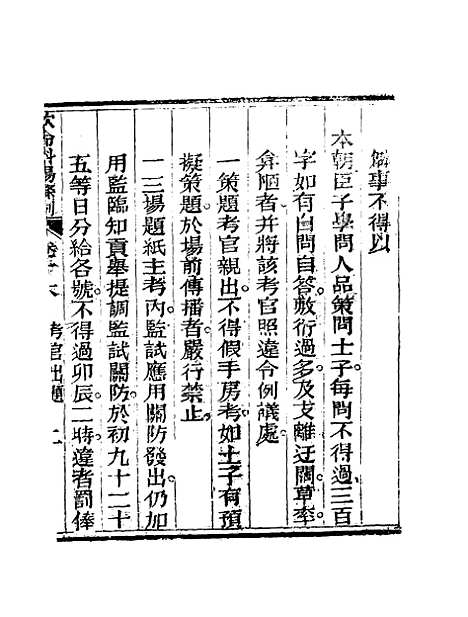 僻事不得以
本朝臣子學問人品策問士子每問不得過三百
字如有自問自答敷衍過多及支離迂闊草率
弇陋者并將該考官照違令例議處
一策題考官親出不得假手房考如士子有預
擬策題於場前傳播者嚴行禁止
一三場題紙主考內監試應用關防發出仍加
用監臨知貢舉提調監試關防於初九十二十
五等日分給各號不得過卯辰二時違者罰俸
欽命科場條例 考官出題 二